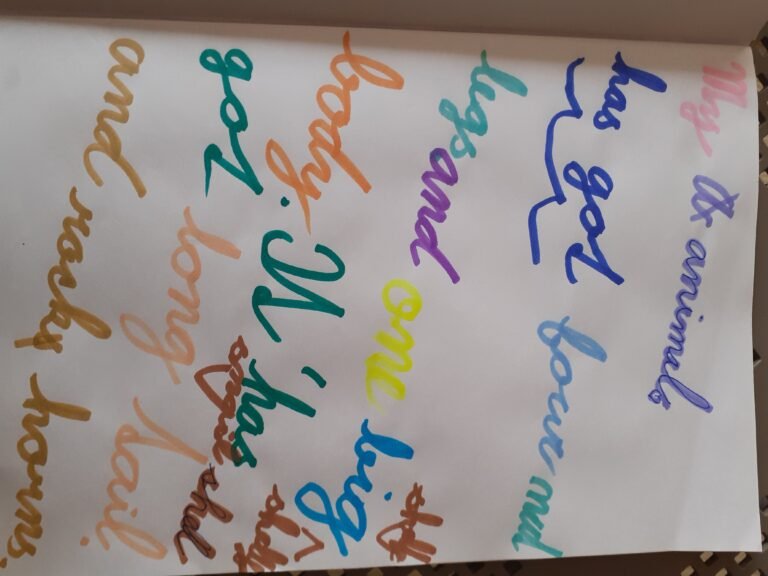 My animal
has got four
legs and one big
body. It has
got long tail.
and horns.